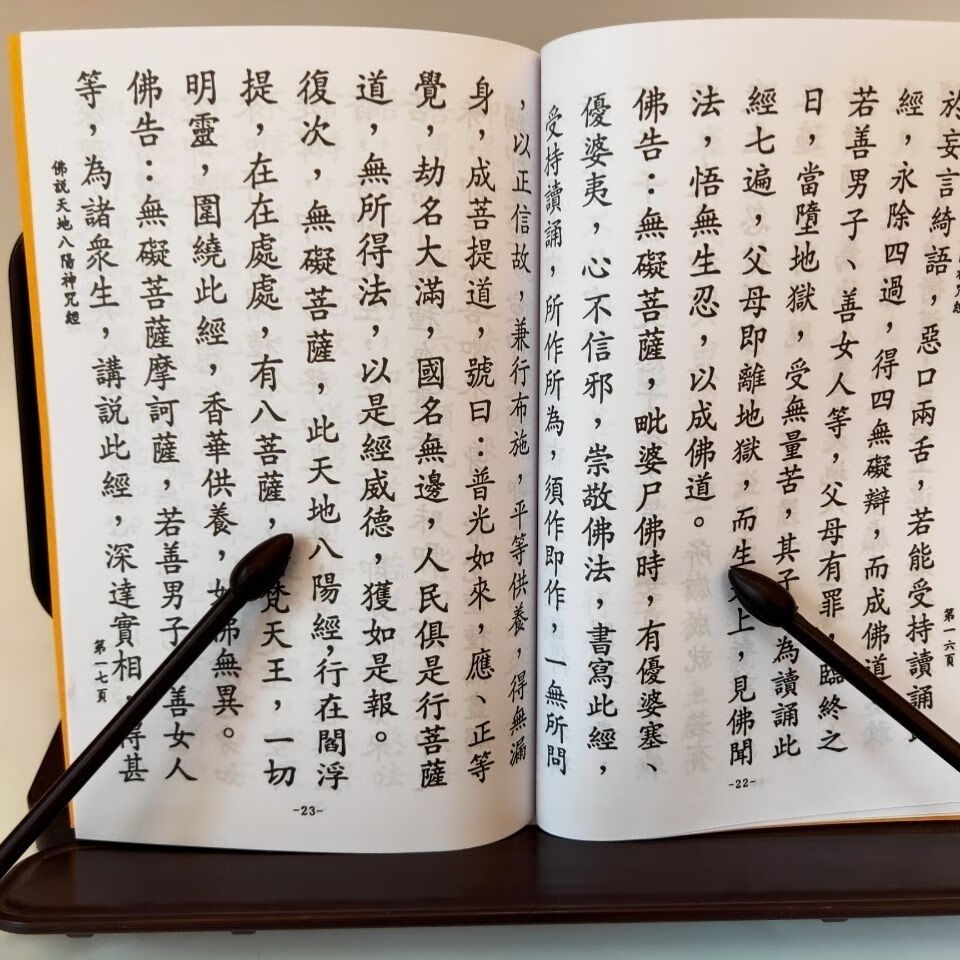 於妄言綺語，惡口兩舌，若能受持讀誦
經，永除四過，得四無礙辯，而成佛道
若善男子、善女人等，父母有罪，臨終之
日，當墮地獄，受無量苦，其子為讀誦此
經七遍，父母即離地獄，而生上，見佛聞
法，悟無生忍，以成佛道。
佛告：無礙菩薩，毗婆尸佛時，有優婆塞、
優婆夷，心不信邪，崇敬佛法，書寫此經，
受持讀誦，所作所為，須作即作，一無所問
第一六頁
-22-
，以正信故，兼行布施，平等供養，得無漏
身，成菩提道，號曰：普光如來，應、正等
覺，劫名大滿，國名無邊，人民俱是行菩薩
道，無所得法，以是經威德，獲如是報。
復次，無礙菩薩，此天地八陽經，行在閻浮
提，在在處處，有八菩薩，梵天王，一切
明靈，圍繞此經，香華供養，如佛無異。
佛告：無礙菩薩摩訶薩，若善男子、善女人
等，為諸眾生，講說此經，深達實相，得甚
佛說天地八陽神咒經
第一七頁
-23-